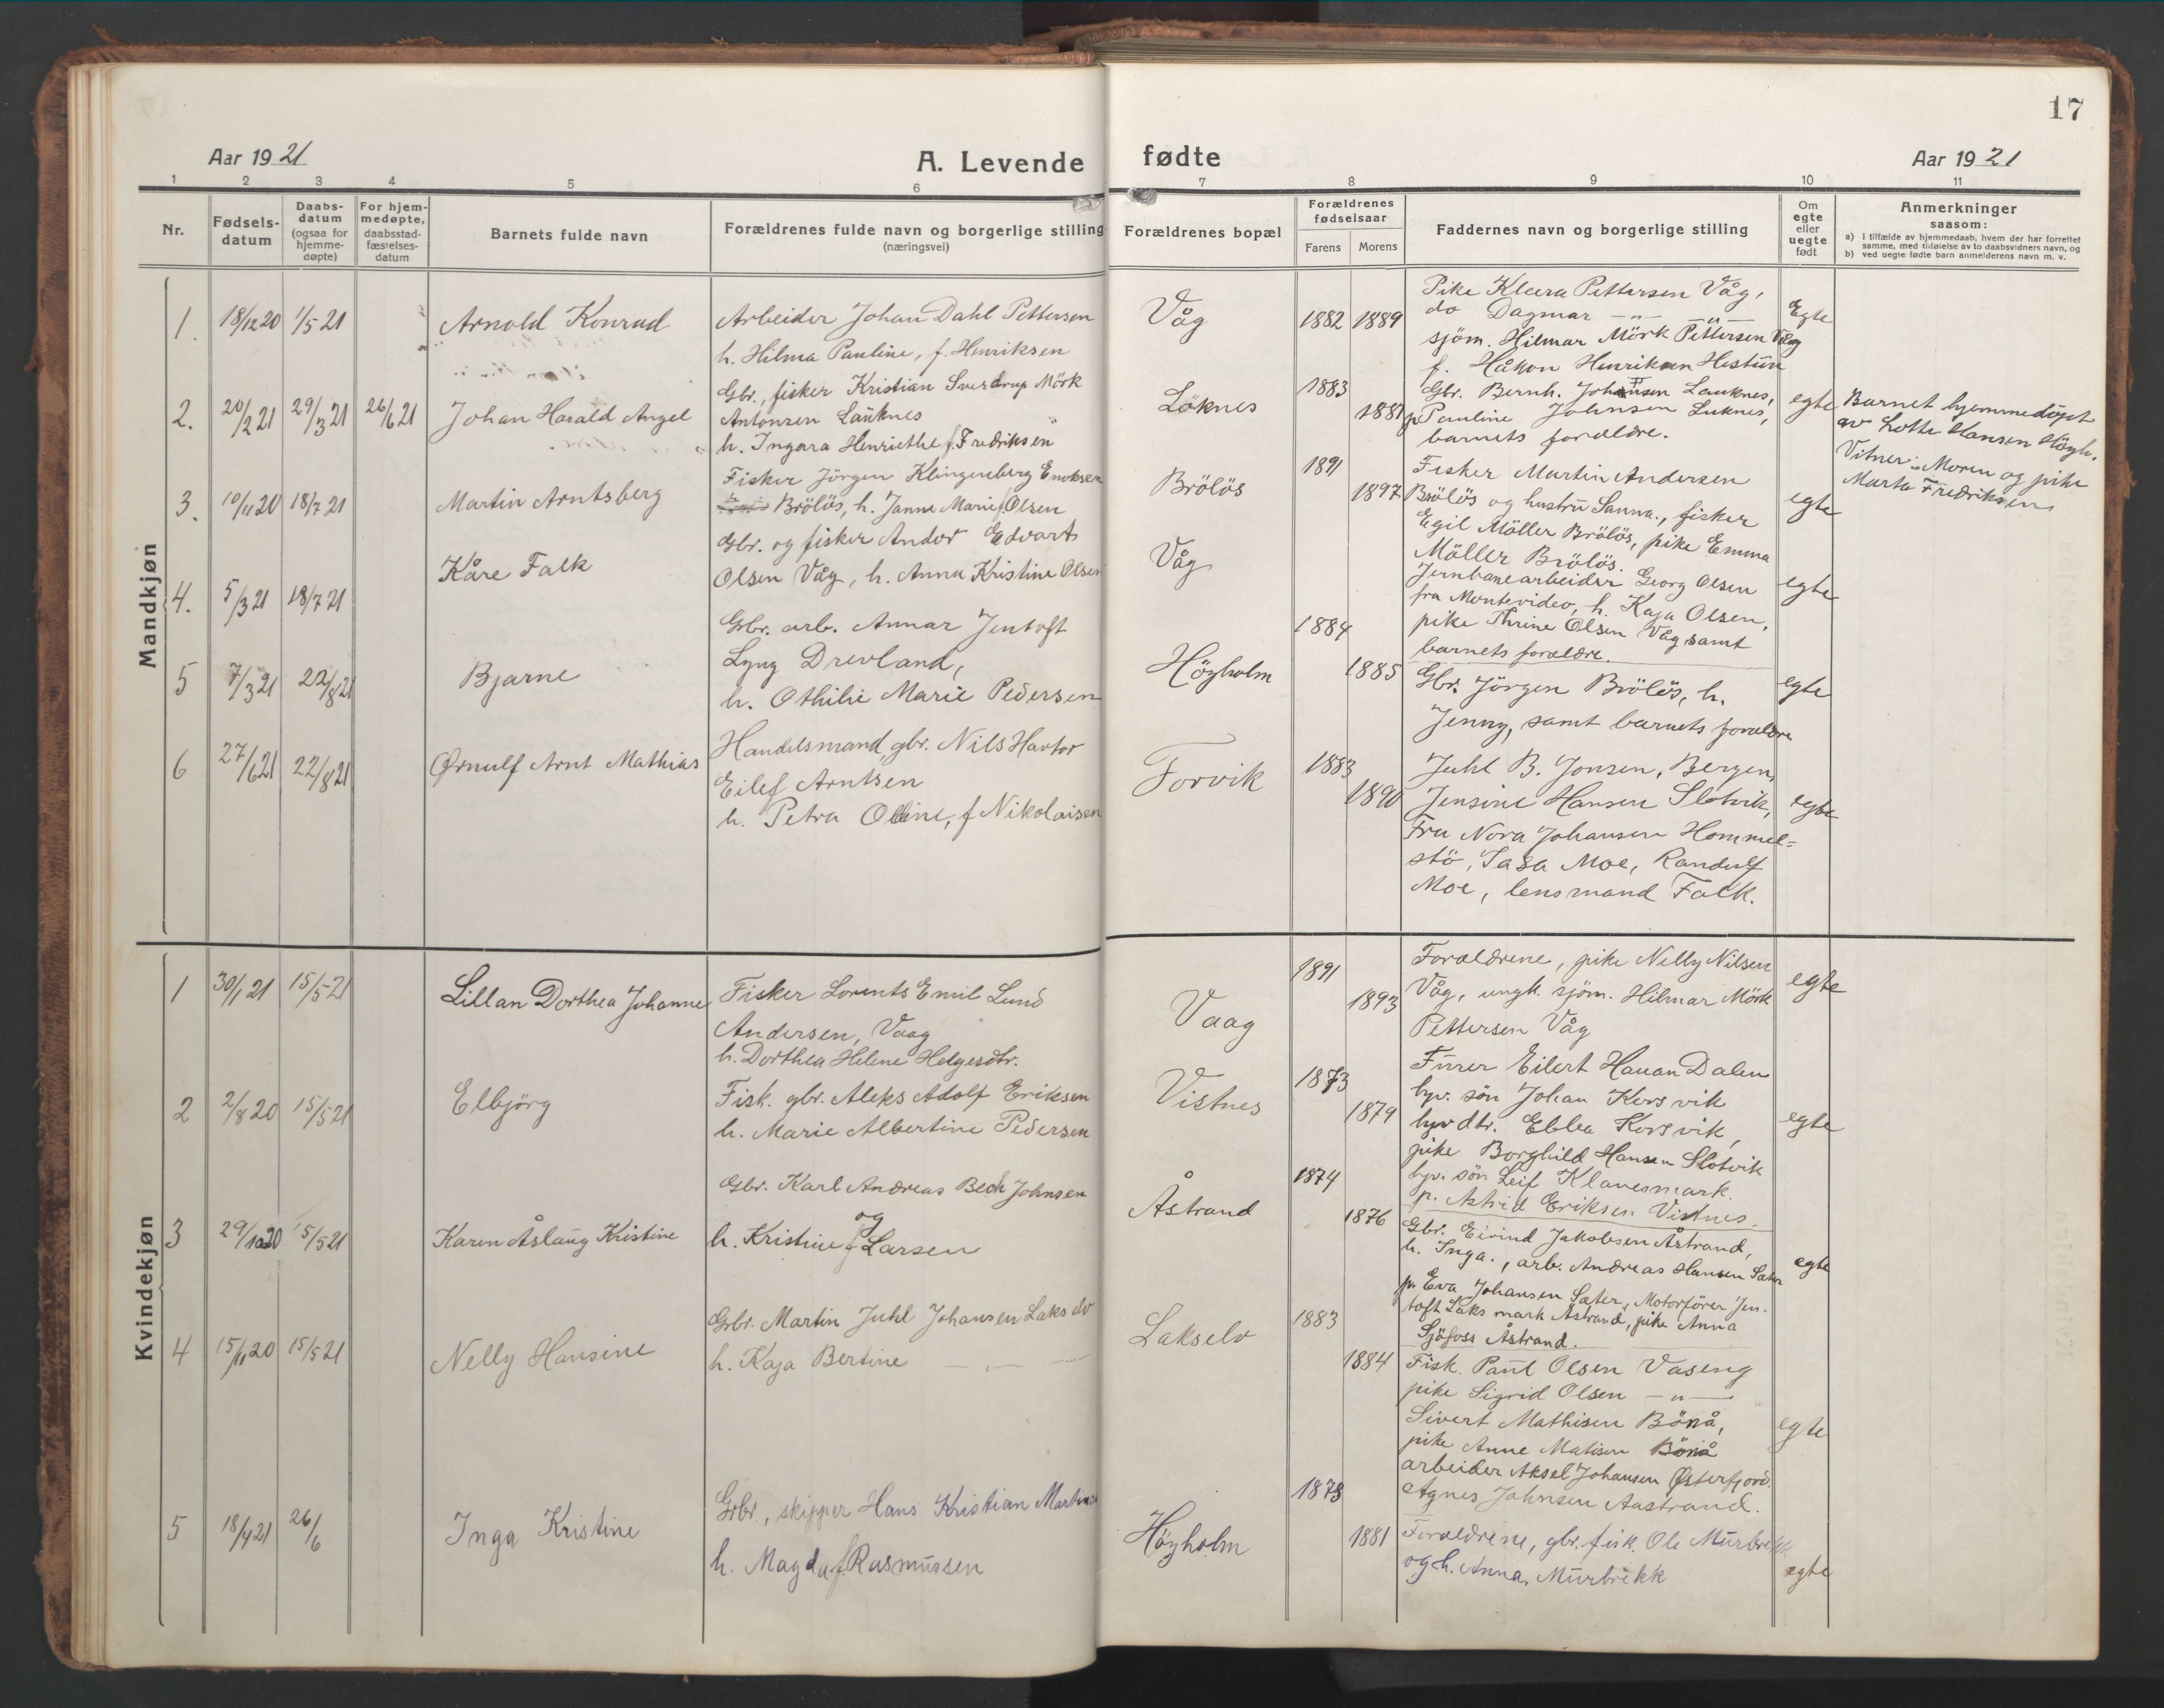 17
Aar 1921
A. Levende fødte
Aar 1921
1 2 3 4 5 6 7 8 9 10 11
Nr.
Fødsels-
datum
Daabs-
datum
(ogsaa for
hjemme-
døpte)
For hjem-
medøpte,
daabsstad-
fæstelses-
datum
Barnets fulde navn
Forældrenes fulde navn og borgerlige stilling
(næringsvei)
Forældrenes bopæl
Forældrenes
fødselsaar
Farens Morens
Faddernes navn og borgerlige stilling
Om
egte
eller
uegte
født
Anmerkninger
saasom:
a) i tilfælde av hjemmedaab, hvem der har forrettet
samme, med tilføielse av to daabsvidners navn, og
b) ved uegte fødte barn anmelderens navn m. v.
Mandkjøn
1. 18/12 20 1/5 21 Arnold Konrad
Arbeider Johan Dahl Pettersen
h. Hilma Pauline, f. Henriksen
Våg
1882 1889
Pike Klara Pettersen Våg,
do Dagmar — " — "
sjöm. Hilmar Mörk Pettersen Våg
f. Håkon Henriksen Hestun
Egte
2. 20/2 21 29/3 21 26/6 21 Johan Harald Angel
Gbr., fisker Kristian Sverdrup Mörk
Antonsen Lauknes
h. Ingara Henriethe f. Fredriksen
Löknes
1883
1881
Gbr. Bernh. Johansen Lauknes,
p. Pauline Johnsen Luknes,
barnets forældre.
egte
Barnet hjemmedöpt
av Lotte Hansen Högh.
Vitner: Moren og pike
Marta Fredriksen
3. 10/11 20 18/7 21 Martin Arntsberg
Fisker Jörgen Klingenberg Enoksen
Brölös, h. Janna Marie f. Olsen
Brölös
1891
1897
Fisker Martin Andersen
Brölös og hustru Sanna., fisker
Egil Möller Brölös, pike Emma
Möller Brölös.
egte
4. 5/3 21 18/7 21 Kåre Falk
Gbr. og fisker Andor Edvart
Olsen Våg, h. Anna Kristine Olsen
Våg
1884
1885
Jernbanearbeider Georg Olsen
fra Montevideo, h. Kaja Olsen,
pike Thrine Olsen Våg samt
barnets forældre.
egte
5 7/3 21 22/8 21 Bjarne
Gbr. arb. Annar Jentoft
Lyng Drevland,
h. Othilie Marie Pedersen
Höyholm
Gbr. Jörgen Brölös, h.
Jenny, samt barnets forældre
egte
6 27/6 21 22/8 21 Ørnulf Arnt Mathias
Handelsmand, gbr. Nils Hartor
Eilef Arntsen
h. Petra Oline, f Nikolaisen
Forvik
1883
1890
Juhl B. Jonsen, Bergen,
Jensine Hansen Slotvik,
Fru Nora Johansen Hommel=
stö, Tasa Moe, Randulf
Moe, lensmand Falck.
egte
Kvindekjøn
1 30/1 21 15/5 21 Lillan Dorthea Johanne
Fisker Lorents Emil Lund
Andersen, Vaag
h. Dorthea Helene Helgesdtr.
Vaag
1891
1893
Forældrene, pike Nelly Nilsen
Våg, ungk. sjöm. Hilmar Mörk
Pettersen Våg
egte
2 2/8 20 15/5 21 Elbjörg
Fisk. gbr. Aleks Adolf Eriksen
h. Marie Albertine Pedersen
Vistnes
1873
1879
Furer Eilert Hauan Dalen
hjv. sön Johan Korsvik
hjv dtr. Ebba Korsvik,
pike Borghild Hansen Slotvik
hjv. sön Leif Klausmark.
p. Astrid Eriksen Vistnes.
egte
3 29/10 20 15/5 21 Karen Åslaug Kristine
Gbr. Karl Andreas Bech Johnsen
og
h. Kristine f Larsen
Åstrand
1874
1876
Gbr. Eivind Jakobsen Åstrand,
h. Inga., arb. Andreas Hansen Sæter
p. Eva Johansen Sæter, Motorförer Jen-
toft Laksmark Åstrand, pike Anna
Sjöfoss Åstrand.
egte
4 15/11 20 15/5 21 Nelly Hansine
Gbr. Martin Juhl Johansen Lakselv
h. Kaja Bertine — " —
Lakselv
1883
1884
Fisk. Paul Olsen Vaseng
pike Sigrid Olsen — " —
Sivert Mathisen Bönå,
pike Anne Matisen Bönå
arbeider Aksel Johansen Østerfjord.
Agnes Johnsen Aastrand.
egte
5 18/4 21 26/6 Inga Kristine
Gbr., skipper Hans Kristian Martinsen
h. Magda f. Rasmussen
Höyholm
1878
1881
Forældrene, gbr. fisk. Ole Murbrekk
og h. Anna, Murbrekk
egte